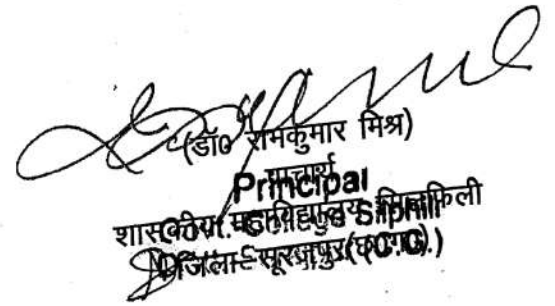 (डॉ0 रामकुमार मिश्र)
प्राचार्य
Principal
शासकीय महाविद्यालय सिलफिली
Govt. College Silphili
जिला-सूरजपुर(छ.ग.)
(C.G.)